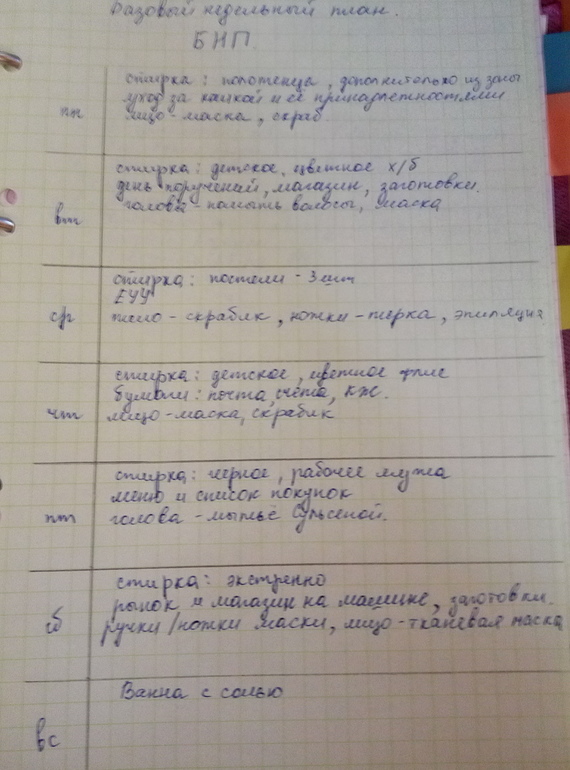 Базовый недельный план.
БНП
пн
стирка: полотенца, дополнительно из зоны
уход за кашкой и её принадлежностями
лицо - маска, скраб
вт
стирка: детское, цветное х/б
день поручений, магазин, заготовки.
голова - помыть волосы, маска
ср
стирка: постели - 3 шт
ЕУУ
тело - скрабик, ножки - терка, эпиляция
чт
стирка: детское, цветное
бумаги: почта, счета, КЖ.
лицо - маска, скрабик
пт
стирка: черное, рабочее мужа
меню и список покупок
голова - мытьё Сульсеной.
сб
стирка: экстренно
рынок и магазин на машине, заготовки.
ручки/ножки маски, лицо - тканевая маска
вс
Ванна с солью